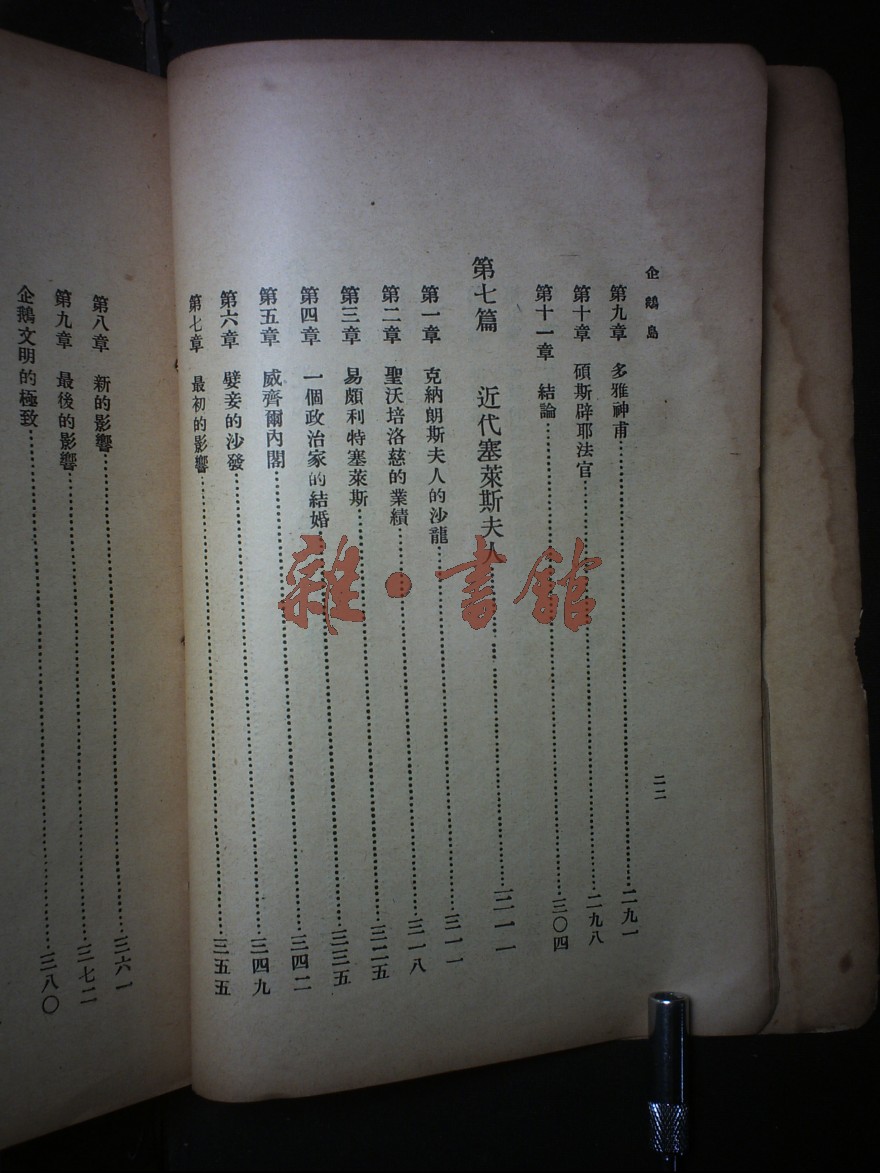 企鵝島
二二
第九章　多雅神甫……二九一
第十章　碩斯辟耶法官……二九八
第十一章　結論……三〇四
第七篇　近代塞萊斯夫人……三一一
第一章　克納朗斯夫人的沙龍……三一一
第二章　聖沃培洛慈的業績……三一八
第三章　易頗利特塞萊斯……三二五
第四章　一個政治家的結婚……三三五
第五章　威齊爾內閣……三四二
第六章　嬖妾的沙發……三四九
第七章　最初的影響……三五五
第八章　新的影響……三六一
第九章　最後的影響……三七二
企鵝文明的極致……三八〇
雜·書館